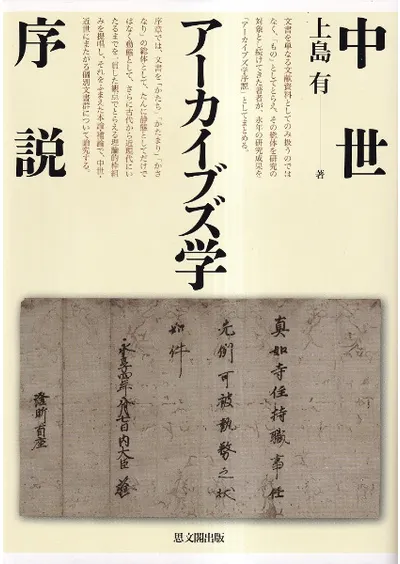 中世
上島有 著
アーカイブズ学
序説
文書を単なる文献資料としてのみ扱うのでは
なく、「もの」としてとらえ、その総体を研究の
対象とし続けてきた著者が、永年の研究成果を
「アーカイブズ学序説」としてまとめる。
序章では、文書を「かたち」「かたまり」「かさ
なり」の総体として、たんに静態としてだけで
はなく動態として、さらに古代から近現代にい
たるまでを一貫した観点でとらえる理論的枠組
みを提唱し、それをふまえた本論で、中世・
近世にまたがる個別文書について追究する。
真如寺住持職事任
先例可被執務之状
如件
永享四年八月七日内大臣
首座
思文閣出版